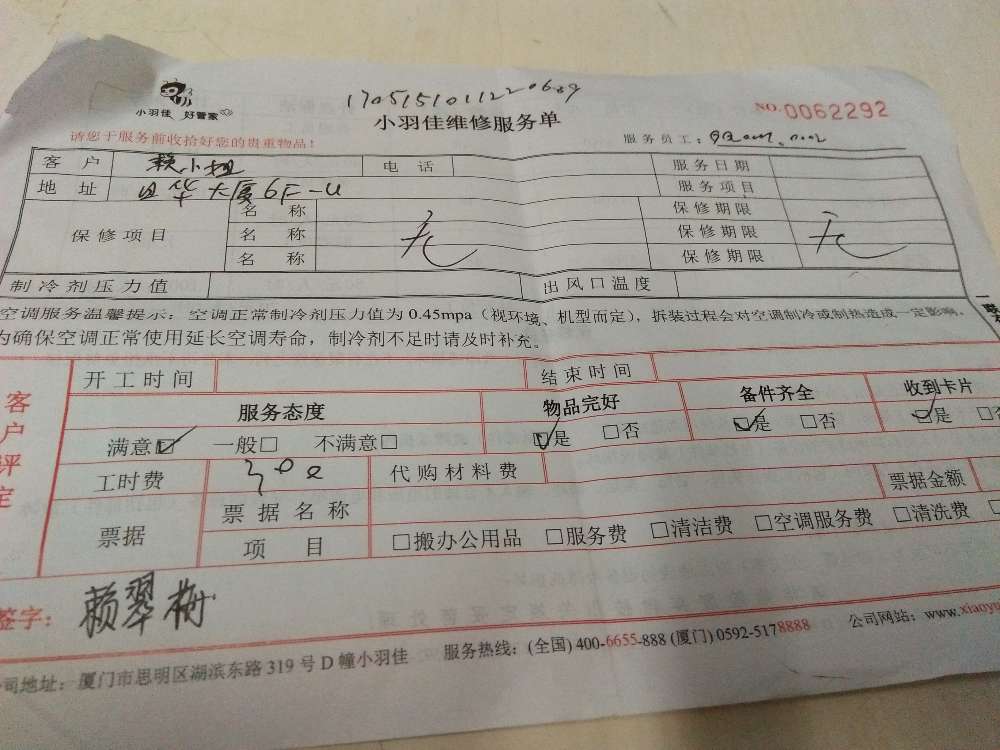 小羽佳 好管家
170515101122
小羽佳维修服务单
NO.0062292
请您于服务前收拾好您的贵重物品！
服务员工：
客 户 赖小姐 电 话 服务日期
地 址 大厦6F-U 服务项目
保修项目 名 称 无 保修期限 无
名 称 保修期限
名 称 保修期限
制冷剂压力值 出风口温度
空调服务温馨提示：空调正常制冷剂压力值为 0.45mpa（视环境、机型而定），拆装过程会对空调制冷或制热造成一定影响，
为确保空调正常使用延长空调寿命，制冷剂不足时请及时补充。
客户评定
开工时间 结束时间
服务态度 物品完好 备件齐全 收到卡片
满意☑ 一般□ 不满意□ ☑是 □否 ☑是 □否 ☑是 □否
工时费 代购材料费
票据 票据名称 票据金额
项 目 □搬办公用品 □服务费 □清洁费 □空调服务费 □清洗费
签字： 赖翠梅
公司地址：厦门市思明区湖滨东路 319 号 D 幢小羽佳 服务热线：(全国) 400-6655-888 (厦门) 0592-5178888 公司网站：www.xiaoyu